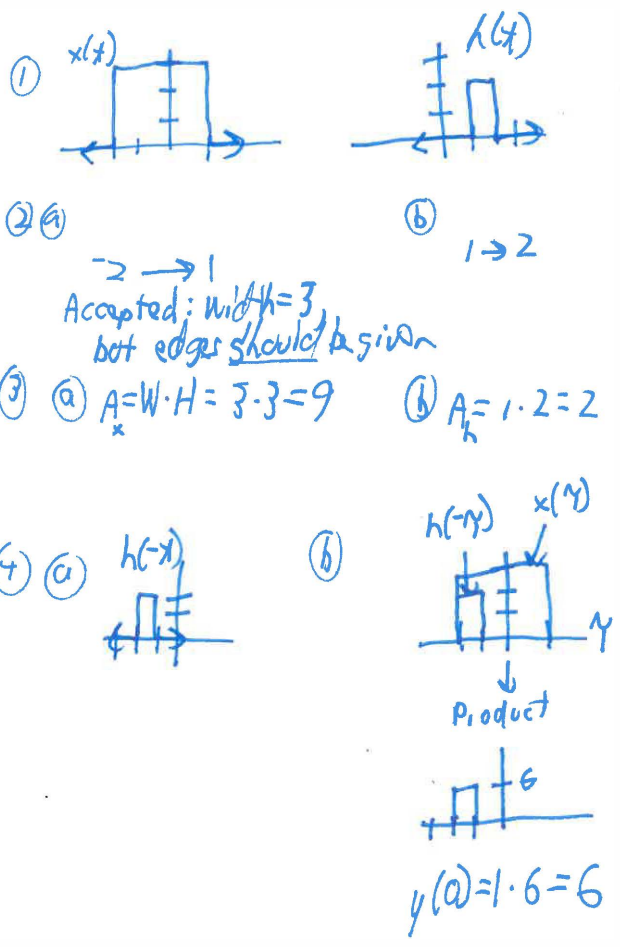 ① x(t) h(t)
② ⓐ ⓑ
-2 → 1 1 → 2
Accepted: width=3,
but edges should be given
③ ⓐ Aₓ=W·H=3·3=9 ⓑ Aₕ=1·2=2
④ ⓐ h(-x) ⓑ h(-γ) x(γ)
γ
Product
6
y(0)=1·6=6